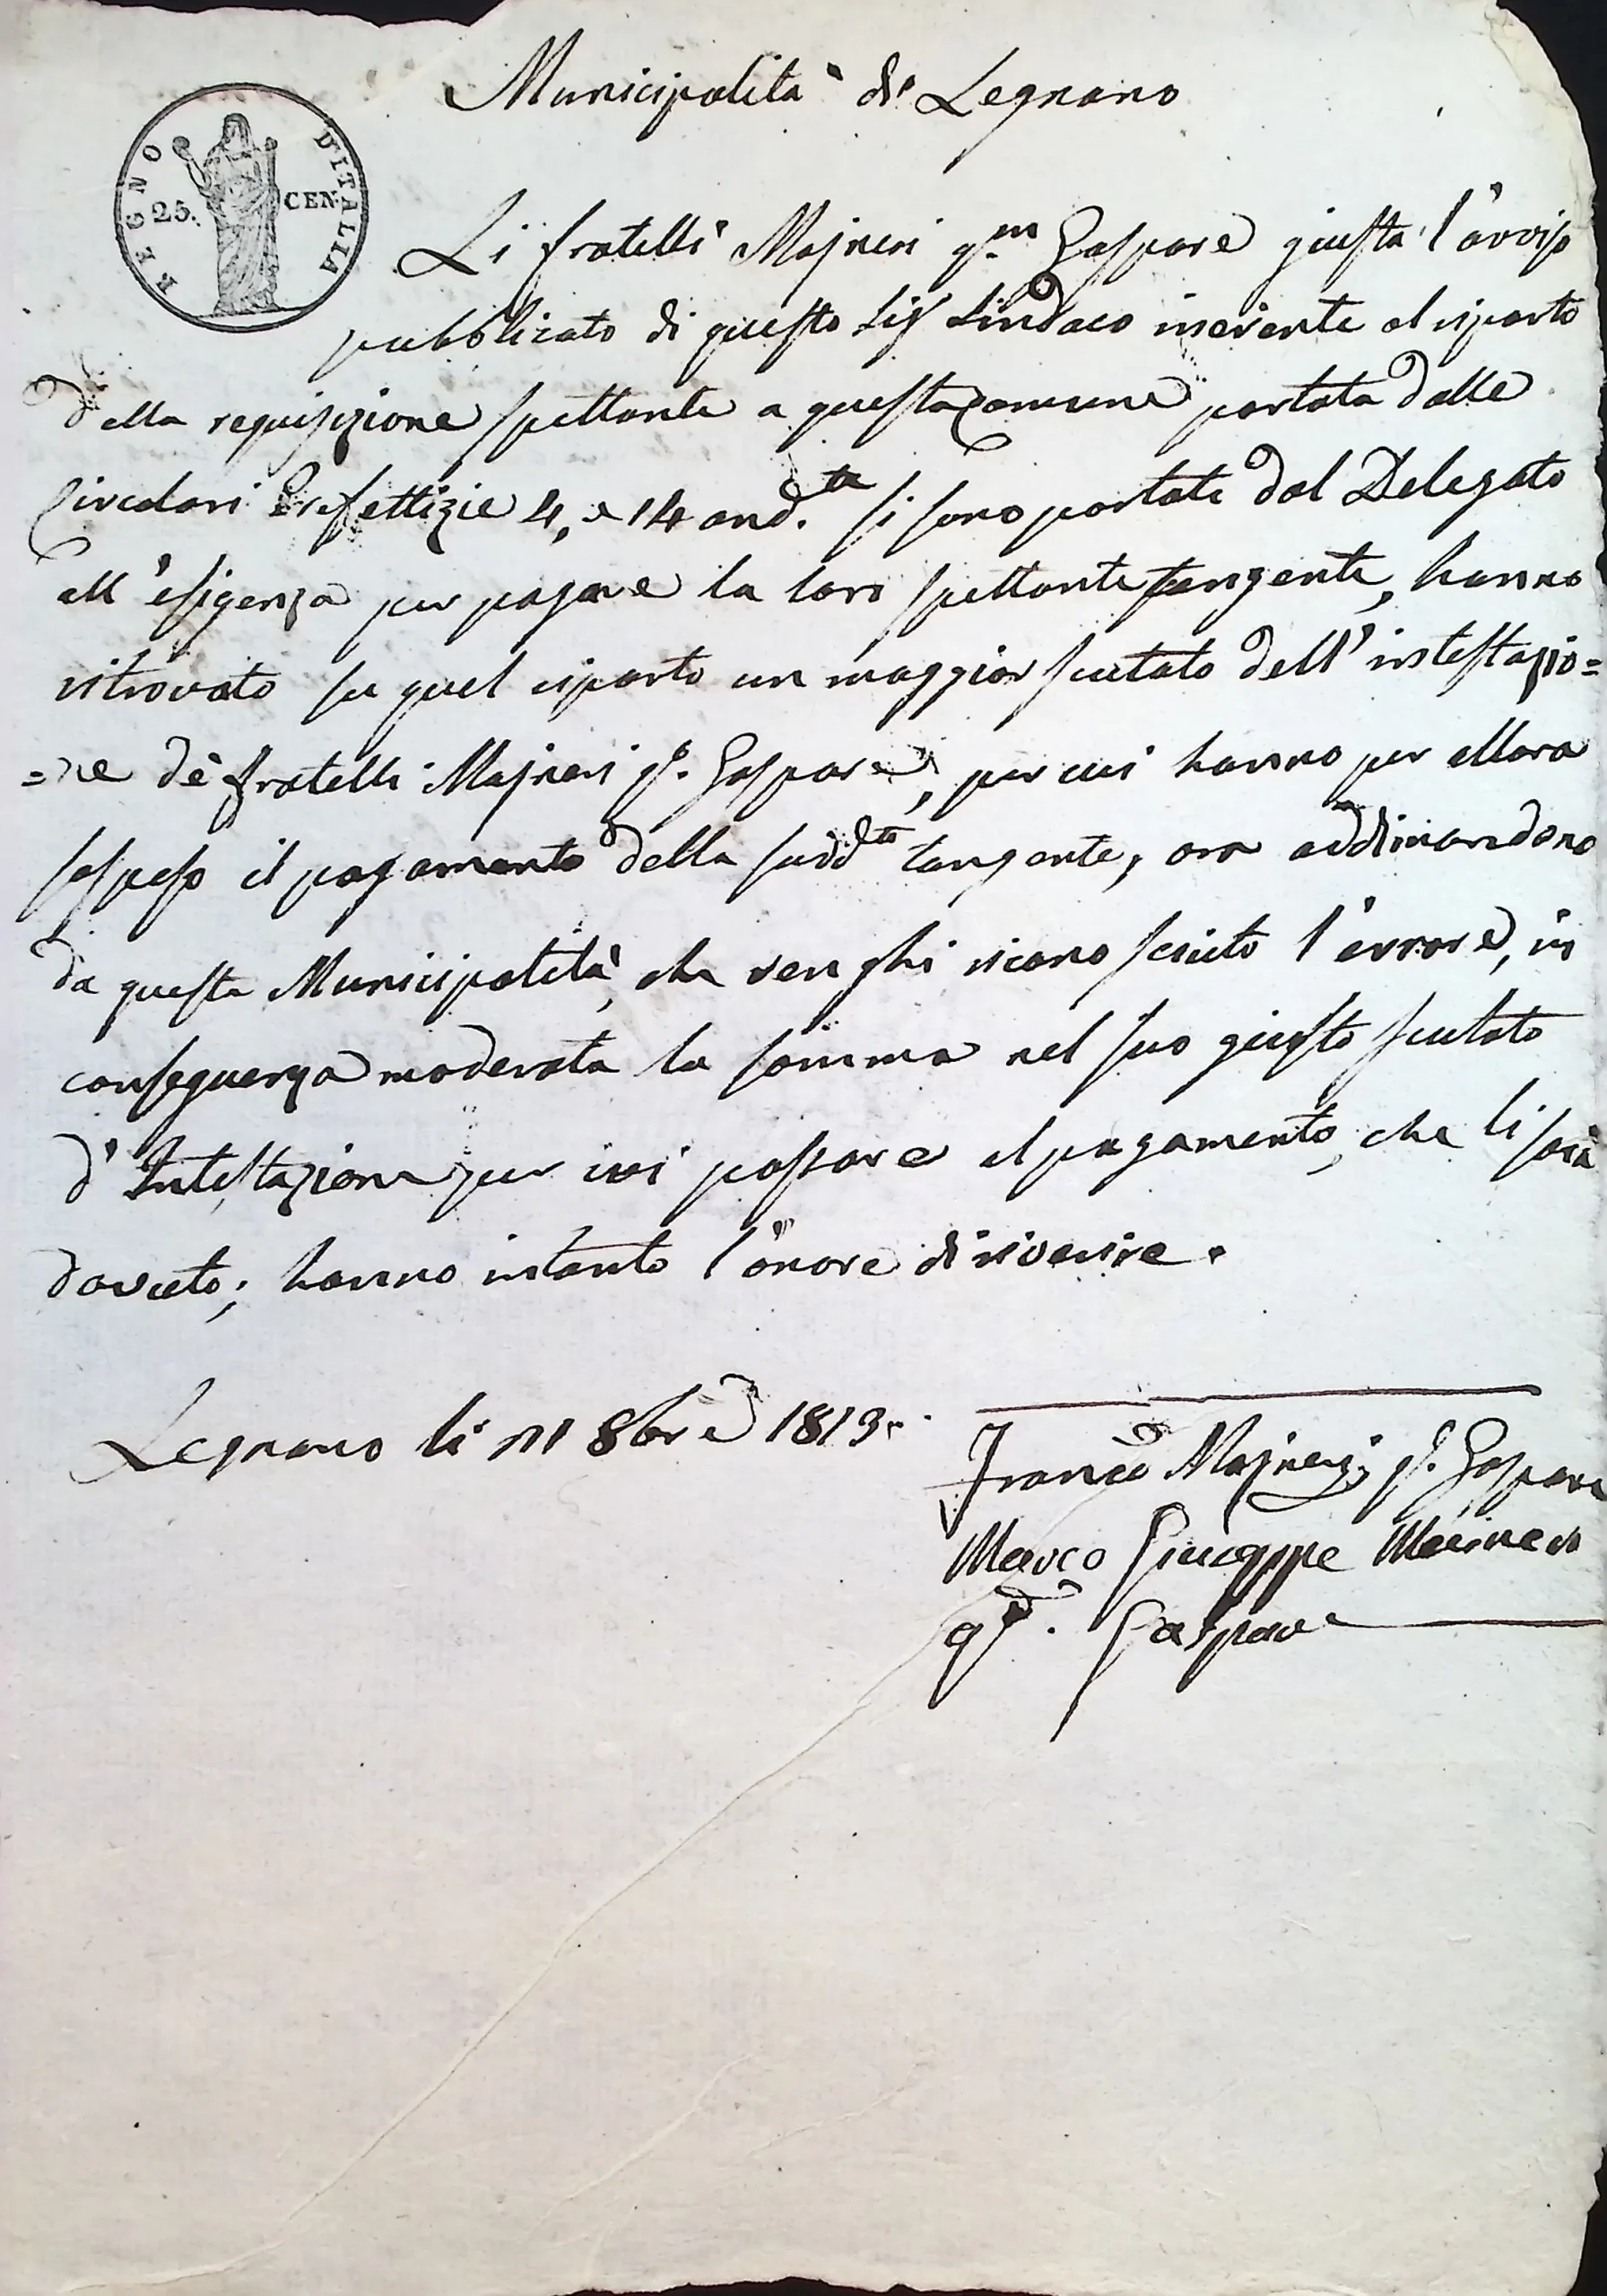 Municipalità di Legnano
REGNO D'ITALIA
25. CEN.
Li fratelli Majneri q.m Gaspare giusta l'avviso
pubblicato di questo Sig Sindaco inerente al riparto
della requisizione spettante a questa Comune portata dalle
Circolari Prefettizie 4, e 14 and.te si sono portati dal Delegato
all'esigenza per pagare la loro spettante tangente, hanno
ritrovato su quel riparto un maggior scutato dell'intestazio=
=ne de fratelli Majneri q. Gaspare, per cui hanno per allora
sospeso il pagamento della sudd.ta tangente, ora addimandano
da questa Municipalità, che venghi riconosciuto l'errore, in
conseguenza moderata la somma nel suo giusto scutato
d'Intestazione per ivi passare al pagamento, che li sarà
dovuto; hanno intanto l'onore di riverire.
Legnano li 8bre 1813.
Franco Majneri q. Gaspare
Marco Giuseppe Maineri
q. Gaspare